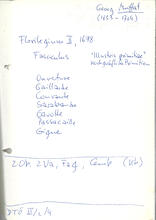 Georg Muffat
(1653 - 1704)
Florilegium II, 1698
Fasciculus "Illustres primitiae"
Ouverture
Gaillarde
Courante
Sarabande
Gavotte
Passacaille
Gigue
2 Ob, 2 Va, Fag, Cemb (Kb)
DTÖ II/2/4